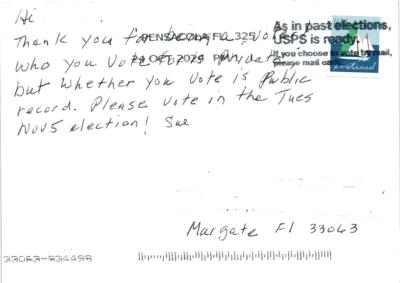 Hi
Thank you for being a voter!
who you vote for is private,
but whether you vote is public
record. Please vote in the Tues
Nov 5 election! Sue
PENSACOLA FL 325
22 OCT 2024 PM
As in past elections,
USPS is ready.
If you choose to vote by mail,
please mail early.
Margate Fl 33063
33063-934499